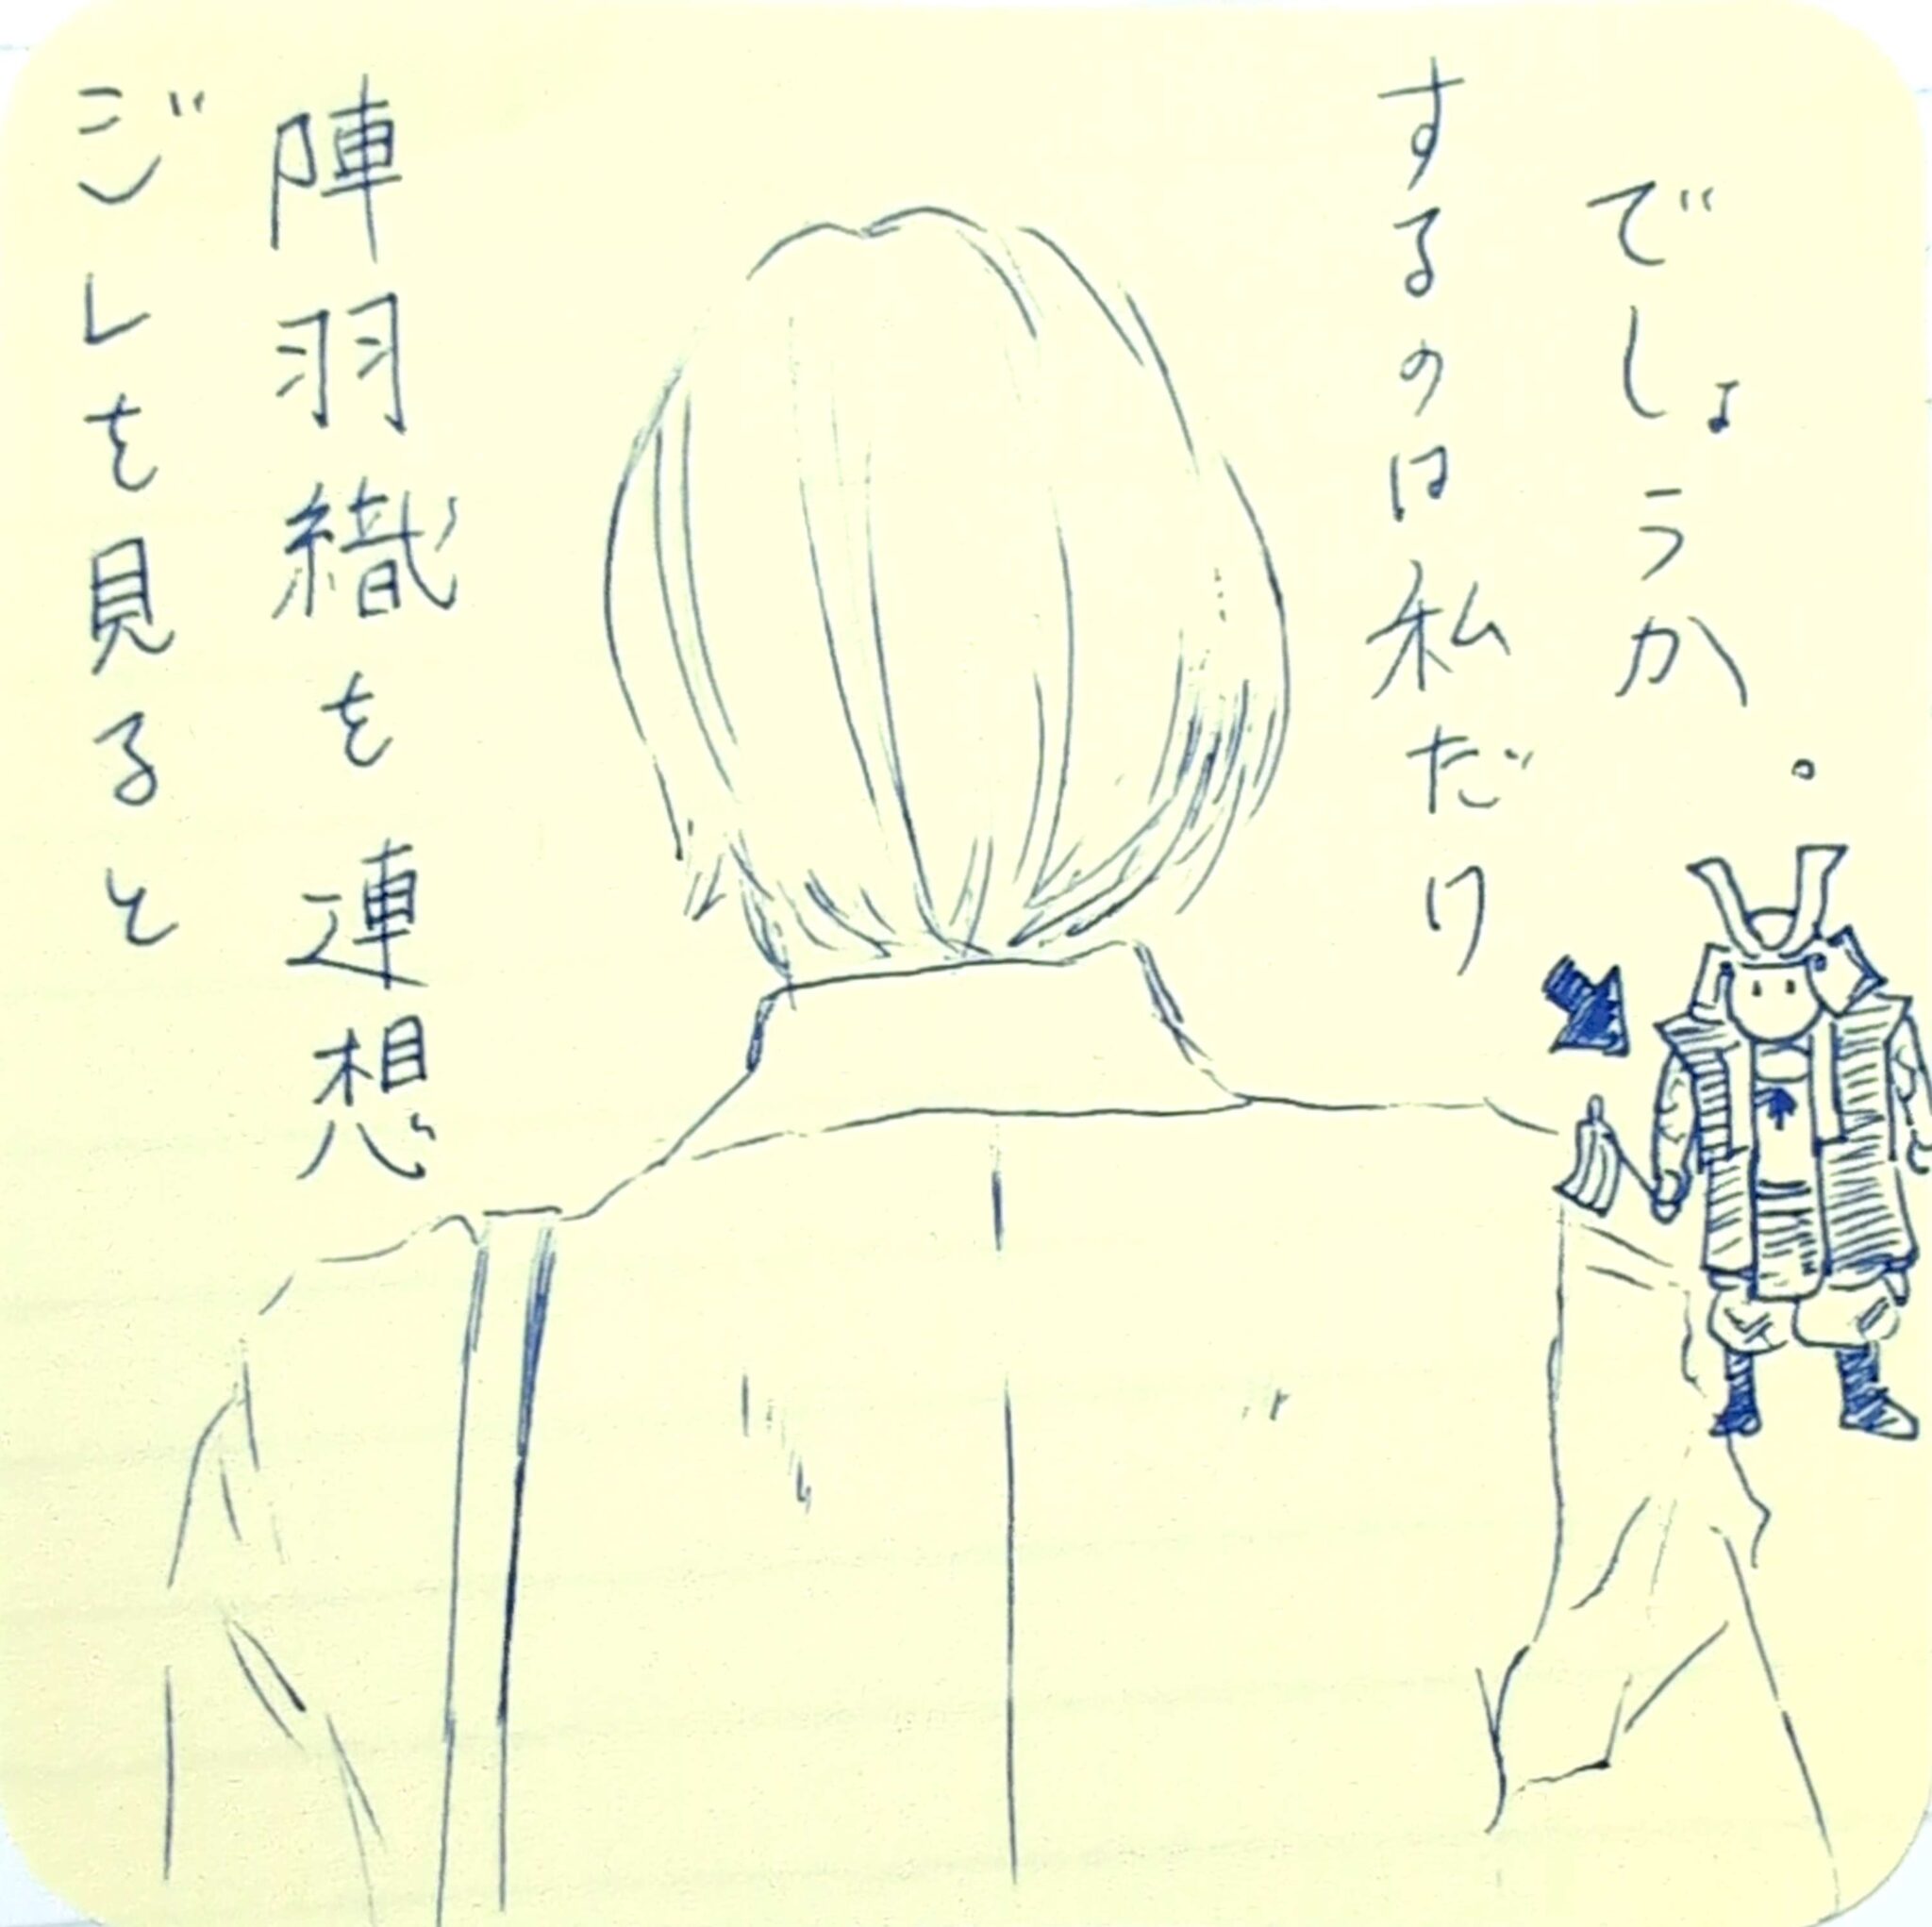 ジレを見ると
陣羽織を連想
するのは私だけ
でしょうか。